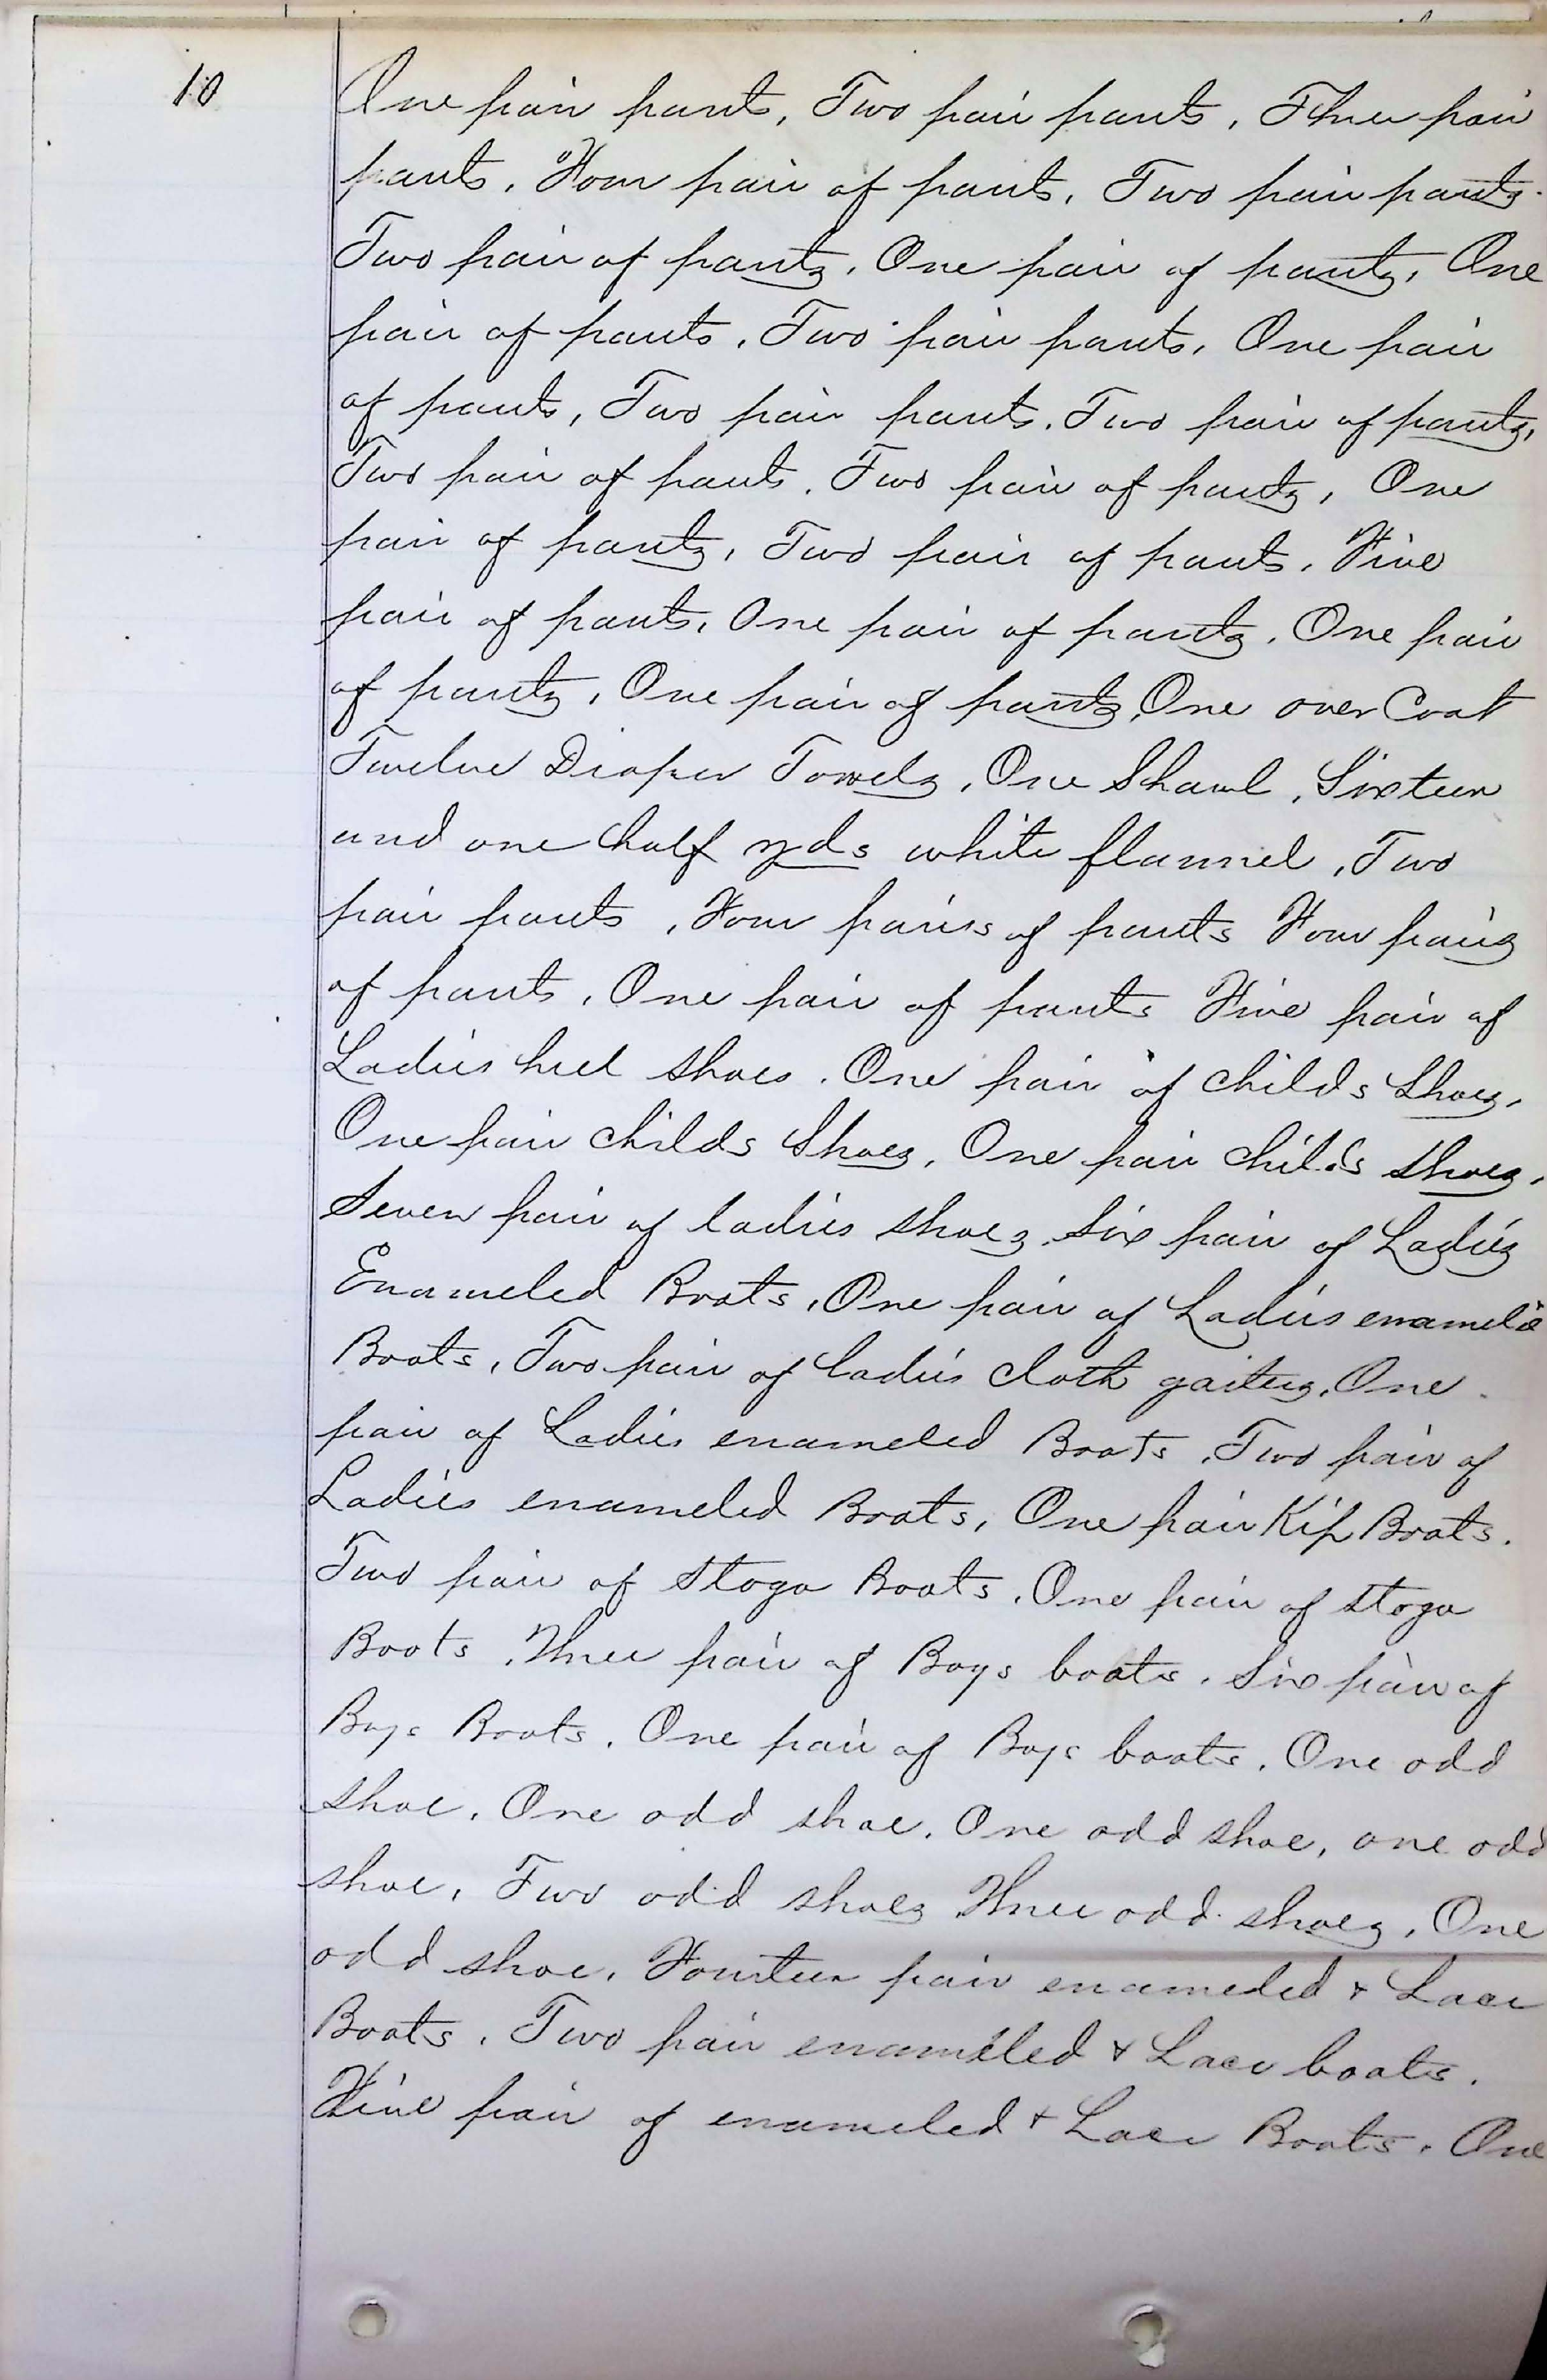 10
One pair pants, Two pair pants, Three pair
pants, Four pair of pants, Two pair pants.
Two pair of pants, One pair of pants, One
pair of pants, Two pair pants, One pair
of pants, Two pair pants. Two pair of pants,
Two pair of pants. Two pair of pants, One
pair of pants, Two pair of pants, Five
pair of pants, One pair of pants, One pair
of pants, One pair of pants, One over Coat
Twelve Diaper Towels, One Shawl, Sixteen
and one half yds white flannel, Two
pair pants, Four pairs of pants Four pairs
of pants, One pair of pants Five pair of
Ladies heel shoes. One pair of childs Shoes,
One pair childs Shoes, One pair childs shoes,
Seven pair of ladies shoes. Six pair of Ladies
Enameled Boots, One pair of Ladies enameled
Boots, Two pair of ladies cloth gaiters, One
pair of Ladies enameled Boots, Two pair of
Ladies enameled Boots, One pair Kip Boots.
Two pair of Stoga Boots, One pair of stoga
Boots, Three pair of Boys boots. Six pair of
Boys Boots. One pair of Boys boots. One odd
shoe. One odd shoe. One odd shoe, one odd
shoe, Two odd shoes Three odd shoes, One
odd shoe. Fourteen pair enameled & Lace
Boots. Two pair enameled & Lace boots.
Five pair of enameled & Lace Boots. One